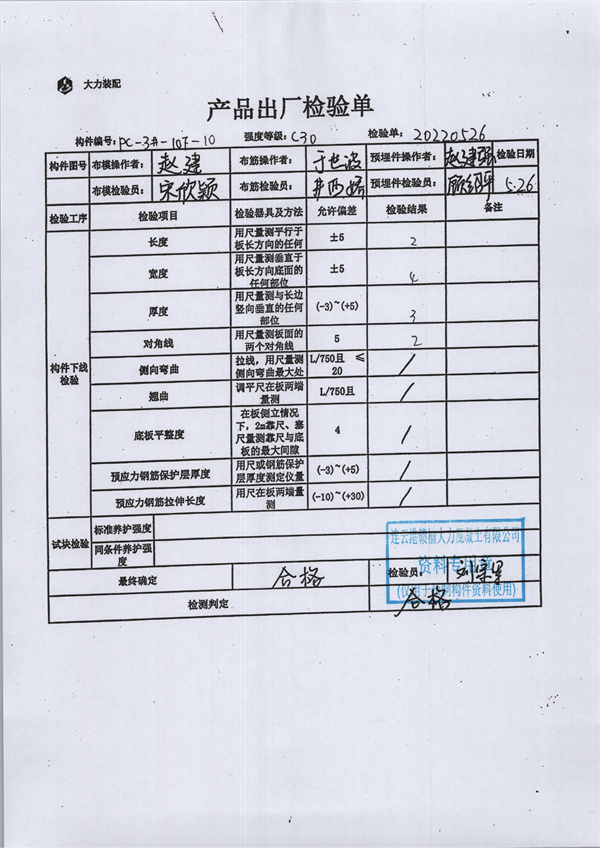 大力装配
产品出厂检验单
构件编号: PC-3#-10F-10 强度等级: C30 检验单: 20220526
构件图号 布模操作者: 赵建 布筋操作者: 于世波 预埋件操作者: 赵建强 检验日期
布模检验员: 宋欣颖 布筋检验员: 预埋件检验员: 5.26
检验工序 检验项目 检验器具及方法 允许偏差 检验结果 备注
构件下线检验
长度 用尺量测平行于板长方向的任何 ±5 2
宽度 用尺量测垂直于板长方向底面的任何部位 ±5 4
厚度 用尺量测与长边竖向垂直的任何部位 (-3)~(+5) 3
对角线 用尺量测板面的两个对角线 5 2
侧向弯曲 拉线，用尺量测侧向弯曲最大处 L/750且 ≤20 /
翘曲 调平尺在板两端量测 L/750且 /
底板平整度 在板侧立情况下，2m靠尺、塞尺量测靠尺与底板的最大间隙 4 /
预应力钢筋保护层厚度 用尺或钢筋保护层厚度测定仪量 (-3)~(+5) /
预应力钢筋拉伸长度 用尺在板两端量测 (-10)~(+30) /
试块检验 标准养护强度
同条件养护强度
连云港赣榆大力混凝土有限公司
资料专用章
最终确定 合格 检验员:
检测判定 合格